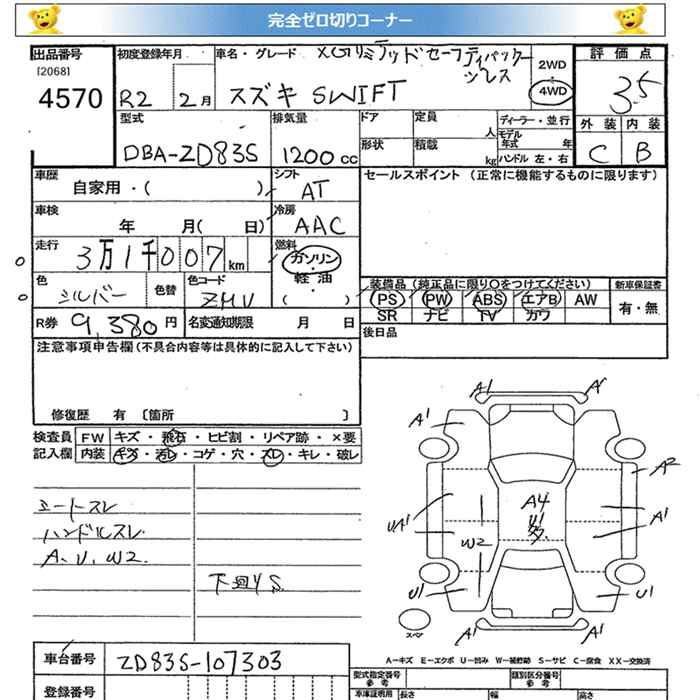 完全ゼロ切りコーナー
出品番号
[2068]
4570
初度登録年月
R2 2月
車名・グレード
XGリミテッドセーフティパッケージ
スズキ SWIFT
2WD
4WD
評価点
3.5
外装 内装
C B
型式
DBA-ZD83S
排気量
1200cc
ドア
定員
人
ディーラー・並行
モデル
年式 年
形状
積載
kg
ハンドル 左・右
車歴
自家用・( )
シフト
AT
セールスポイント (正常に機能するものに限ります)
車検
年 月( 日)
冷房
AAC
走行
3万1千007km
燃料
ガソリン・
軽油・
( )
色
シルバー
色替
色コード
装備品 (純正品に限り○をつけてください)
PS PW ABS エアB AW
SR ナビ TV カワ
新車保証書
有・無
R券 9,380円
名変通知期限 月 日
後日品
注意事項申告欄(不具合内容等は具体的に記入して下さい)
修復歴 有 〔箇所 〕
検査員
記入欄
FW キズ・飛石・ヒビ割・リペア跡・×要
内装 キズ・汚レ・コゲ・穴・スレ・キレ・破レ
ハンドルスレ
A.U.W2.
下回りS
A1 A1
A1
A2
UA1
W2
A4
U1
多
A1
U1 U1
A1 A1
スペア
A-キズ E-エクボ U-凹み W-補修跡 S-サビ C-腐食 XX-交換済
車台番号
ZD83S-107303
登録番号
型式指定番号
参考
類別区分番号
参考
車庫証明用 長さ 幅 高さ